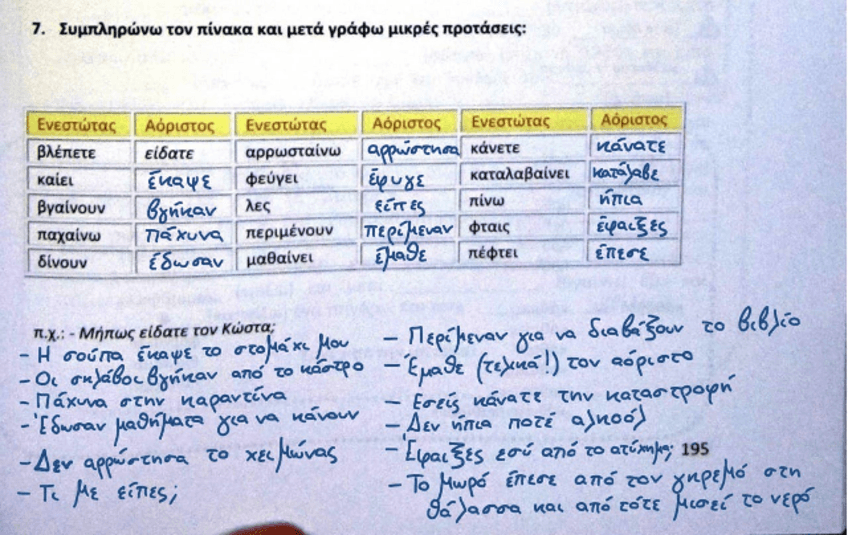 7. Συμπληρώνω τον πίνακα και μετά γράφω μικρές προτάσεις:
Ενεστώτας Αόριστος Ενεστώτας Αόριστος Ενεστώτας Αόριστος
βλέπετε είδατε αρρωσταίνω αρρώστησα κάνετε κάνατε
καίει έκαψε φεύγει έφυγε καταλαβαίνει κατάλαβε
βγαίνουν βγήκαν λες είπες πίνω ήπια
παχαίνω πάχυνα περιμένουν περίμεναν φταις έφταιξες
δίνουν έδωσαν μαθαίνει έμαθε πέφτει έπεσε
π.χ.: - Μήπως είδατε τον Κώστα;
- Η σούπα έκαψε το στομάχι μου
- Οι σκλάβοι βγήκαν από το κάστρο
- Πάχυνα στην καραντίνα
- Έδωσαν μαθήματα για να κάνουν
- Δεν αρρώστησα το χειμώνας
- Τι με είπες;
- Περίμεναν για να διαβάζουν το βιβλίο
- Έμαθε (τελικά!) τον αόριστο
- Εσείς κάνατε την καταστροφή
- Δεν ήπια ποτέ αλκοόλ
- Έφταιξες εσύ από το ατύχημα; 195
- Το μωρό έπεσε από τον γκρεμό στη
θάλασσα και από τότε μισεί το νερό